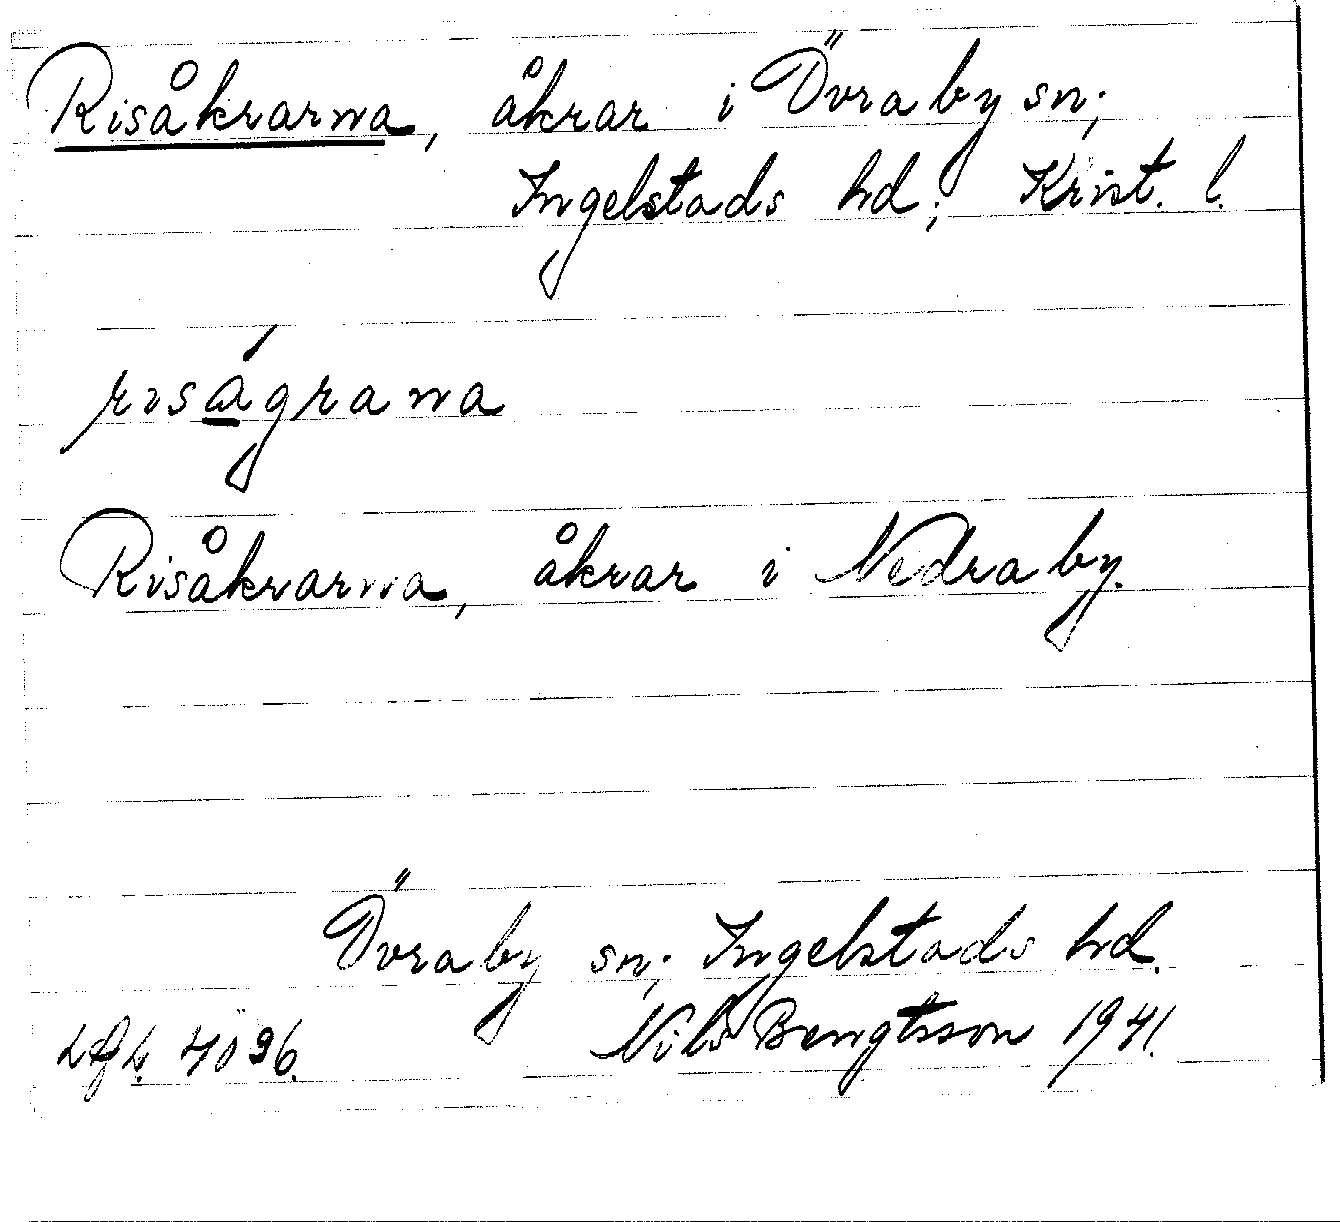 Risåkrarna, åkrar i Övraby sn;
Ingelstads hd; Krist. l.
risá̲grana
Risåkrarna, åkrar i Nedraby.
Övraby sn; Ingelstads hd.
4096. Nils Bengtsson 1941.